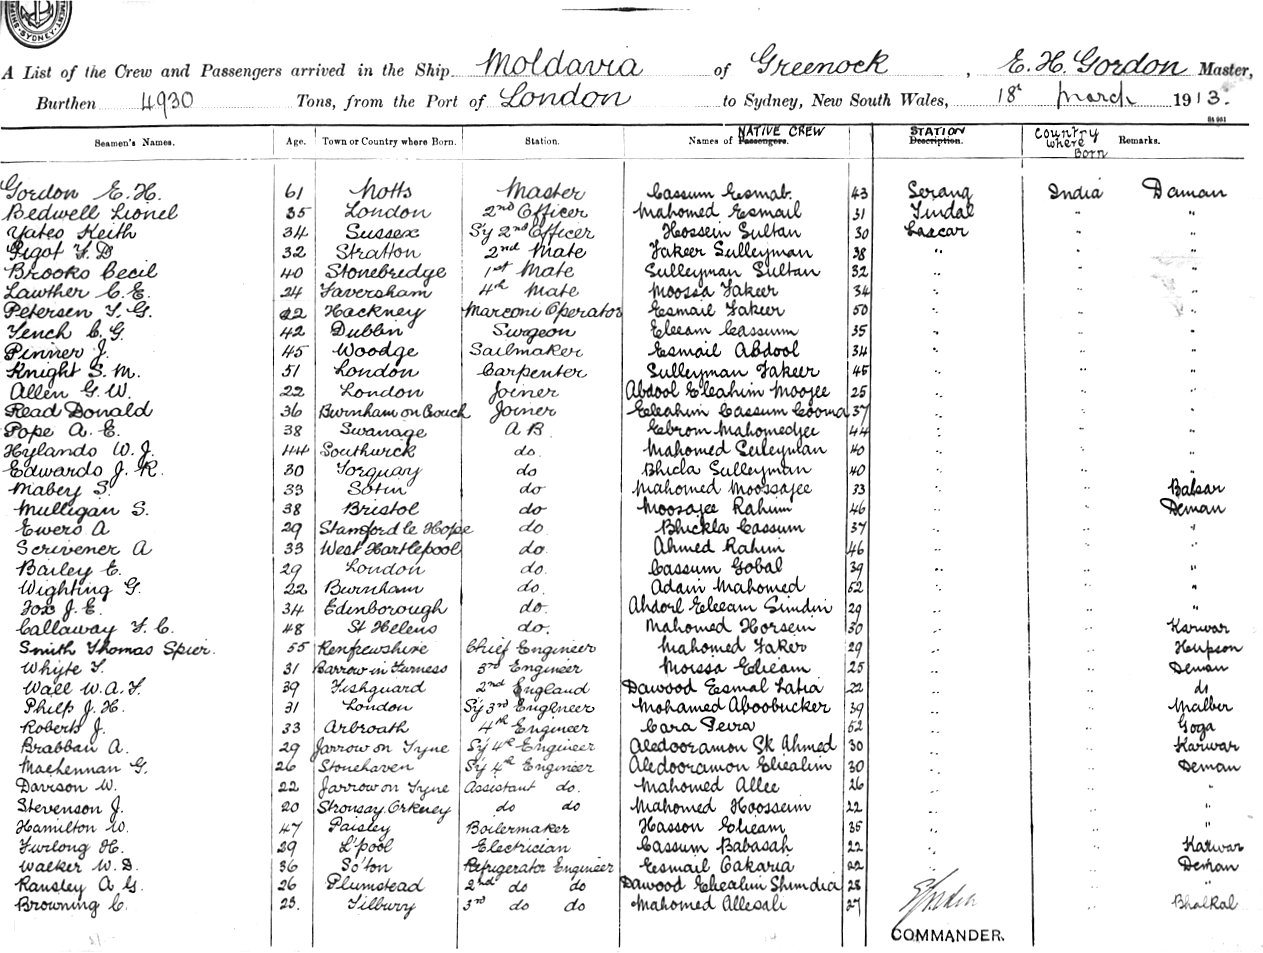 SYDNEY
A List of the Crew and Passengers arrived in the Ship Moldavia of Greenock, E. H. Gordon Master,
Burthen 4930 Tons, from the Port of London to Sydney, New South Wales, 18th March 1913.
Seamen's Names. Age. Town or Country where Born. Station. Names of Passengers. NATIVE CREW STATION Description. Country where Born Remarks.
Gordon E. H. 61 Notts Master Cassum Esmab. 43 Serang India Daman
Bedwell Lionel 35 London 2nd Officer Mahomed Esmail 31 Tindal " "
Yates Keith 34 Sussex Sy 2nd Officer Hossein Sultan 30 Lascar " "
Pigot F. D 32 Stratton 2nd Mate Fakeer Sulleyman 38 " " "
Brooks Cecil 40 Stonebridge 1st Mate Sulleyman Sultan 32 " " "
Lawther C. E. 24 Faversham 4th Mate Moossa Fakeer 34 " " "
Petersen F. G. 22 Hackney Marconi Operator Esmail Fakeer 50 " " "
Tench C. G. 42 Dublin Surgeon Eleeam Cassum 35 " " "
Pinner J. 45 Woodge Sailmaker Esmail Abdool 34 " " "
Knight S. M. 51 London Carpenter Sulleyman Fakeer 45 " " "
Allen G. W. 22 London Joiner Abdool Eleahim Moojee 25 " " "
Read Donald 36 Burnham on Crouch Joiner Eleahim Cassum Cooma 37 " " "
Pope A. E. 38 Swanage A B Ebrom Mahomedjee 44 " " "
Hylands W. J. 44 Southwick do. Mahomed Suleyman 40 " " "
Edwards J. R. 30 Torquay do Bhicla Sulleyman 40 " " "
Mabey S. 33 do Mahomed Moossajee 33 " " Balsar
Mulligan S. 38 Bristol do Moosajee Rahum 46 " " Deman
Ewers A 29 Stamford le Hope do. Bhickla Cassum 37 " " "
Scrivener A 33 West Hartlepool do. Ahmed Rahim 46 " " "
Bailey E. 29 London do. Cassum Gobal 39 " " "
Wighting G. 22 Burnham do. Adam Mahomed 52 " " "
Fox J. E. 34 Edinborough do. Eleeam Simdin 29 " " "
Callaway F. C. 48 St Helens do. Mahomed Horsein 30 " " Karwar
Smith Thomas Spier. 55 Renfrewshire Chief Engineer Mahomed Faker 29 " "
Whyte T. 31 Barrow in Furness 3rd Engineer Moissa Elieam 25 " " Deman
Wall W. A. F. 39 Fishguard 2nd England Dawood Esmal Latia 22 " " do
Philp J. H. 31 London Sy 3rd Engineer Mohamed Aboobucker 39 " " Malbur
Roberts J. 33 Arbroath 4th Engineer Cara Peira 52 " " Goga
Brabban A. 29 Jarrow on Tyne Sy 4th Engineer Aledooramon Sk Ahmed 30 " " Karwar
MacLennan G. 26 Stonehaven Sy 4th Engineer Aledooramon Eliealim 30 " " Deman
Davison W. 22 Jarrow on Tyne Assistant do. Mahomed Allee 26 " " "
Stevenson J. 20 Stronsay Orkney do do Mahomed Hoossein 22 " " "
Hamilton W. 47 Paisley Boilermaker Hasson Elieam 35 " " "
Furlong H. 29 L'pool Electrician Cassum Babasah 22 " " Karwar
Walker W. D. 36 So'ton Refrigerator Engineer Esmail Cakaria 22 " " Deman
Ransley A G. 26 Plumstead 2nd do do Dawood Eliealim Shimdia 28 " "
Browning C. 25. Tilbury 3rd do do Mahomed Allesali 27 " Bhalkal
COMMANDER.